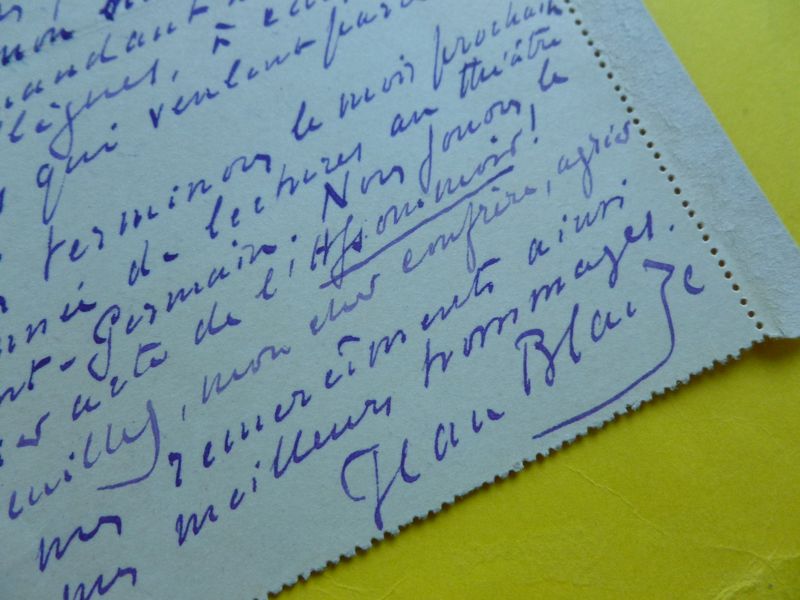 mon
mandant
lègues, à
qui veulent
terminons le mois prochain
année de lectures au théâtre
nt-Germain. Nous jouons, le
er acte de l'Assommoir!
euillez, mon cher confrère, agréer
mes remerciments ainsi
mes meilleurs hommages.
Jean Blaize